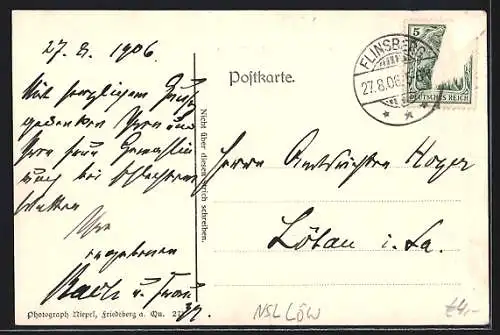 27. 8. 1906
Mit herzlichem Gruß
gedenken Ihrer und
Ihrer Frau Gemahlin
bei schlechtem
Wetter
Ihr
ergebener
u. Frau
Photograph Niepel, Friedeberg a. Qu. 27
Nicht über diesen Strich schreiben.
Postkarte.
FLINSBERG
27.8.06.
5
DEUTSCHES REICH
Herrn Amtsrichter Hoyer
Löbau i. Sa.
NSL LÖW
€4,-